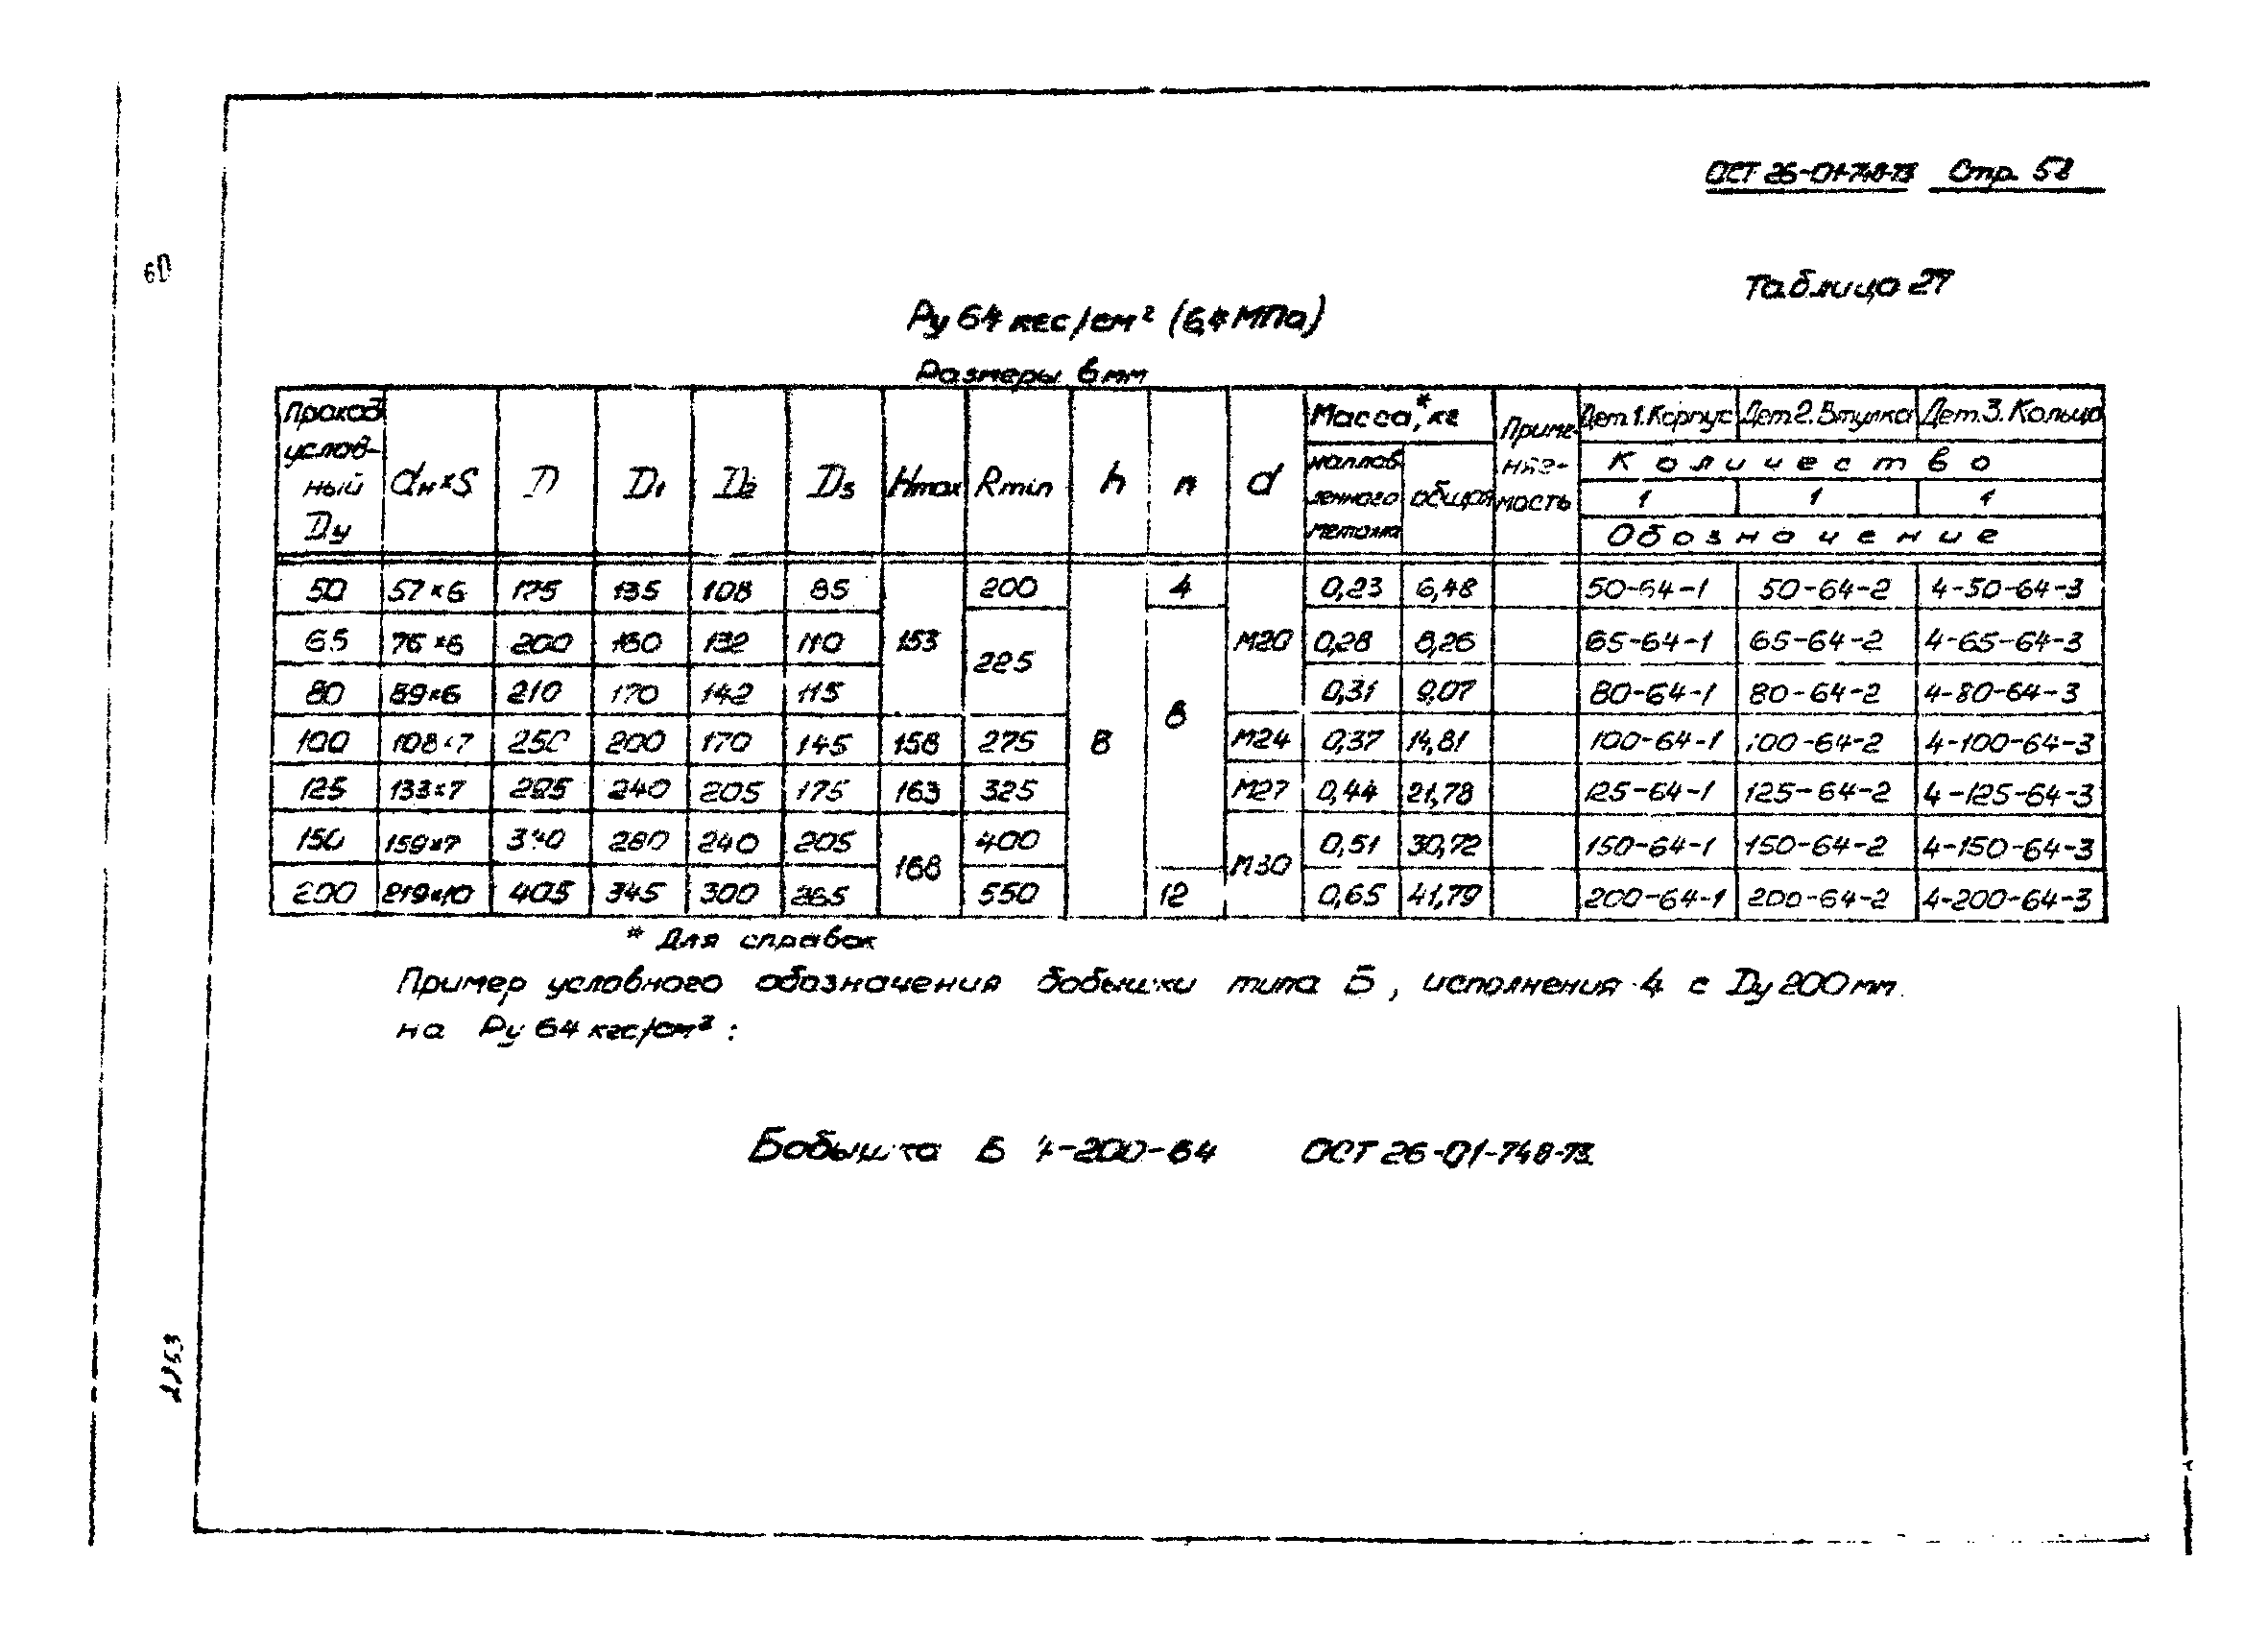 ОСТ 26-01-748-73 Стр. 58
60
Таблица 27
Ру 64 кгс/см² (6,4 МПа)
Размеры в мм
Проход условный Dу | dн×S | D | D1 | D2 | D3 | Hmax | Rmin | h | n | d | Масса,* кг | Применяемость | Дет.1. Корпус | Дет.2. Втулка | Дет.3. Кольцо
наплавленного металла | общая | Количество
1 | 1 | 1
Обозначение
50 | 57×6 | 175 | 135 | 108 | 85 | 153 | 200 | 8 | 4 | М20 | 0,23 | 6,48 | 50-64-1 | 50-64-2 | 4-50-64-3
65 | 76×6 | 200 | 160 | 132 | 110 | 225 | 8 | 0,28 | 8,26 | 65-64-1 | 65-64-2 | 4-65-64-3
80 | 89×6 | 210 | 170 | 142 | 115 | 0,31 | 9,07 | 80-64-1 | 80-64-2 | 4-80-64-3
100 | 108×7 | 250 | 200 | 170 | 145 | 158 | 275 | М24 | 0,37 | 14,81 | 100-64-1 | 100-64-2 | 4-100-64-3
125 | 133×7 | 295 | 240 | 205 | 175 | 163 | 325 | М27 | 0,44 | 21,78 | 125-64-1 | 125-64-2 | 4-125-64-3
150 | 159×7 | 340 | 280 | 240 | 205 | 168 | 400 | М30 | 0,51 | 30,72 | 150-64-1 | 150-64-2 | 4-150-64-3
200 | 219×10 | 405 | 345 | 300 | 265 | 550 | 12 | 0,65 | 41,79 | 200-64-1 | 200-64-2 | 4-200-64-3
* Для справок
Пример условного обозначения бобышки типа Б, исполнения 4 с Dу 200 мм
на Ру 64 кгс/см²:
Бобышка Б 4-200-64 ОСТ 26-01-748-73.